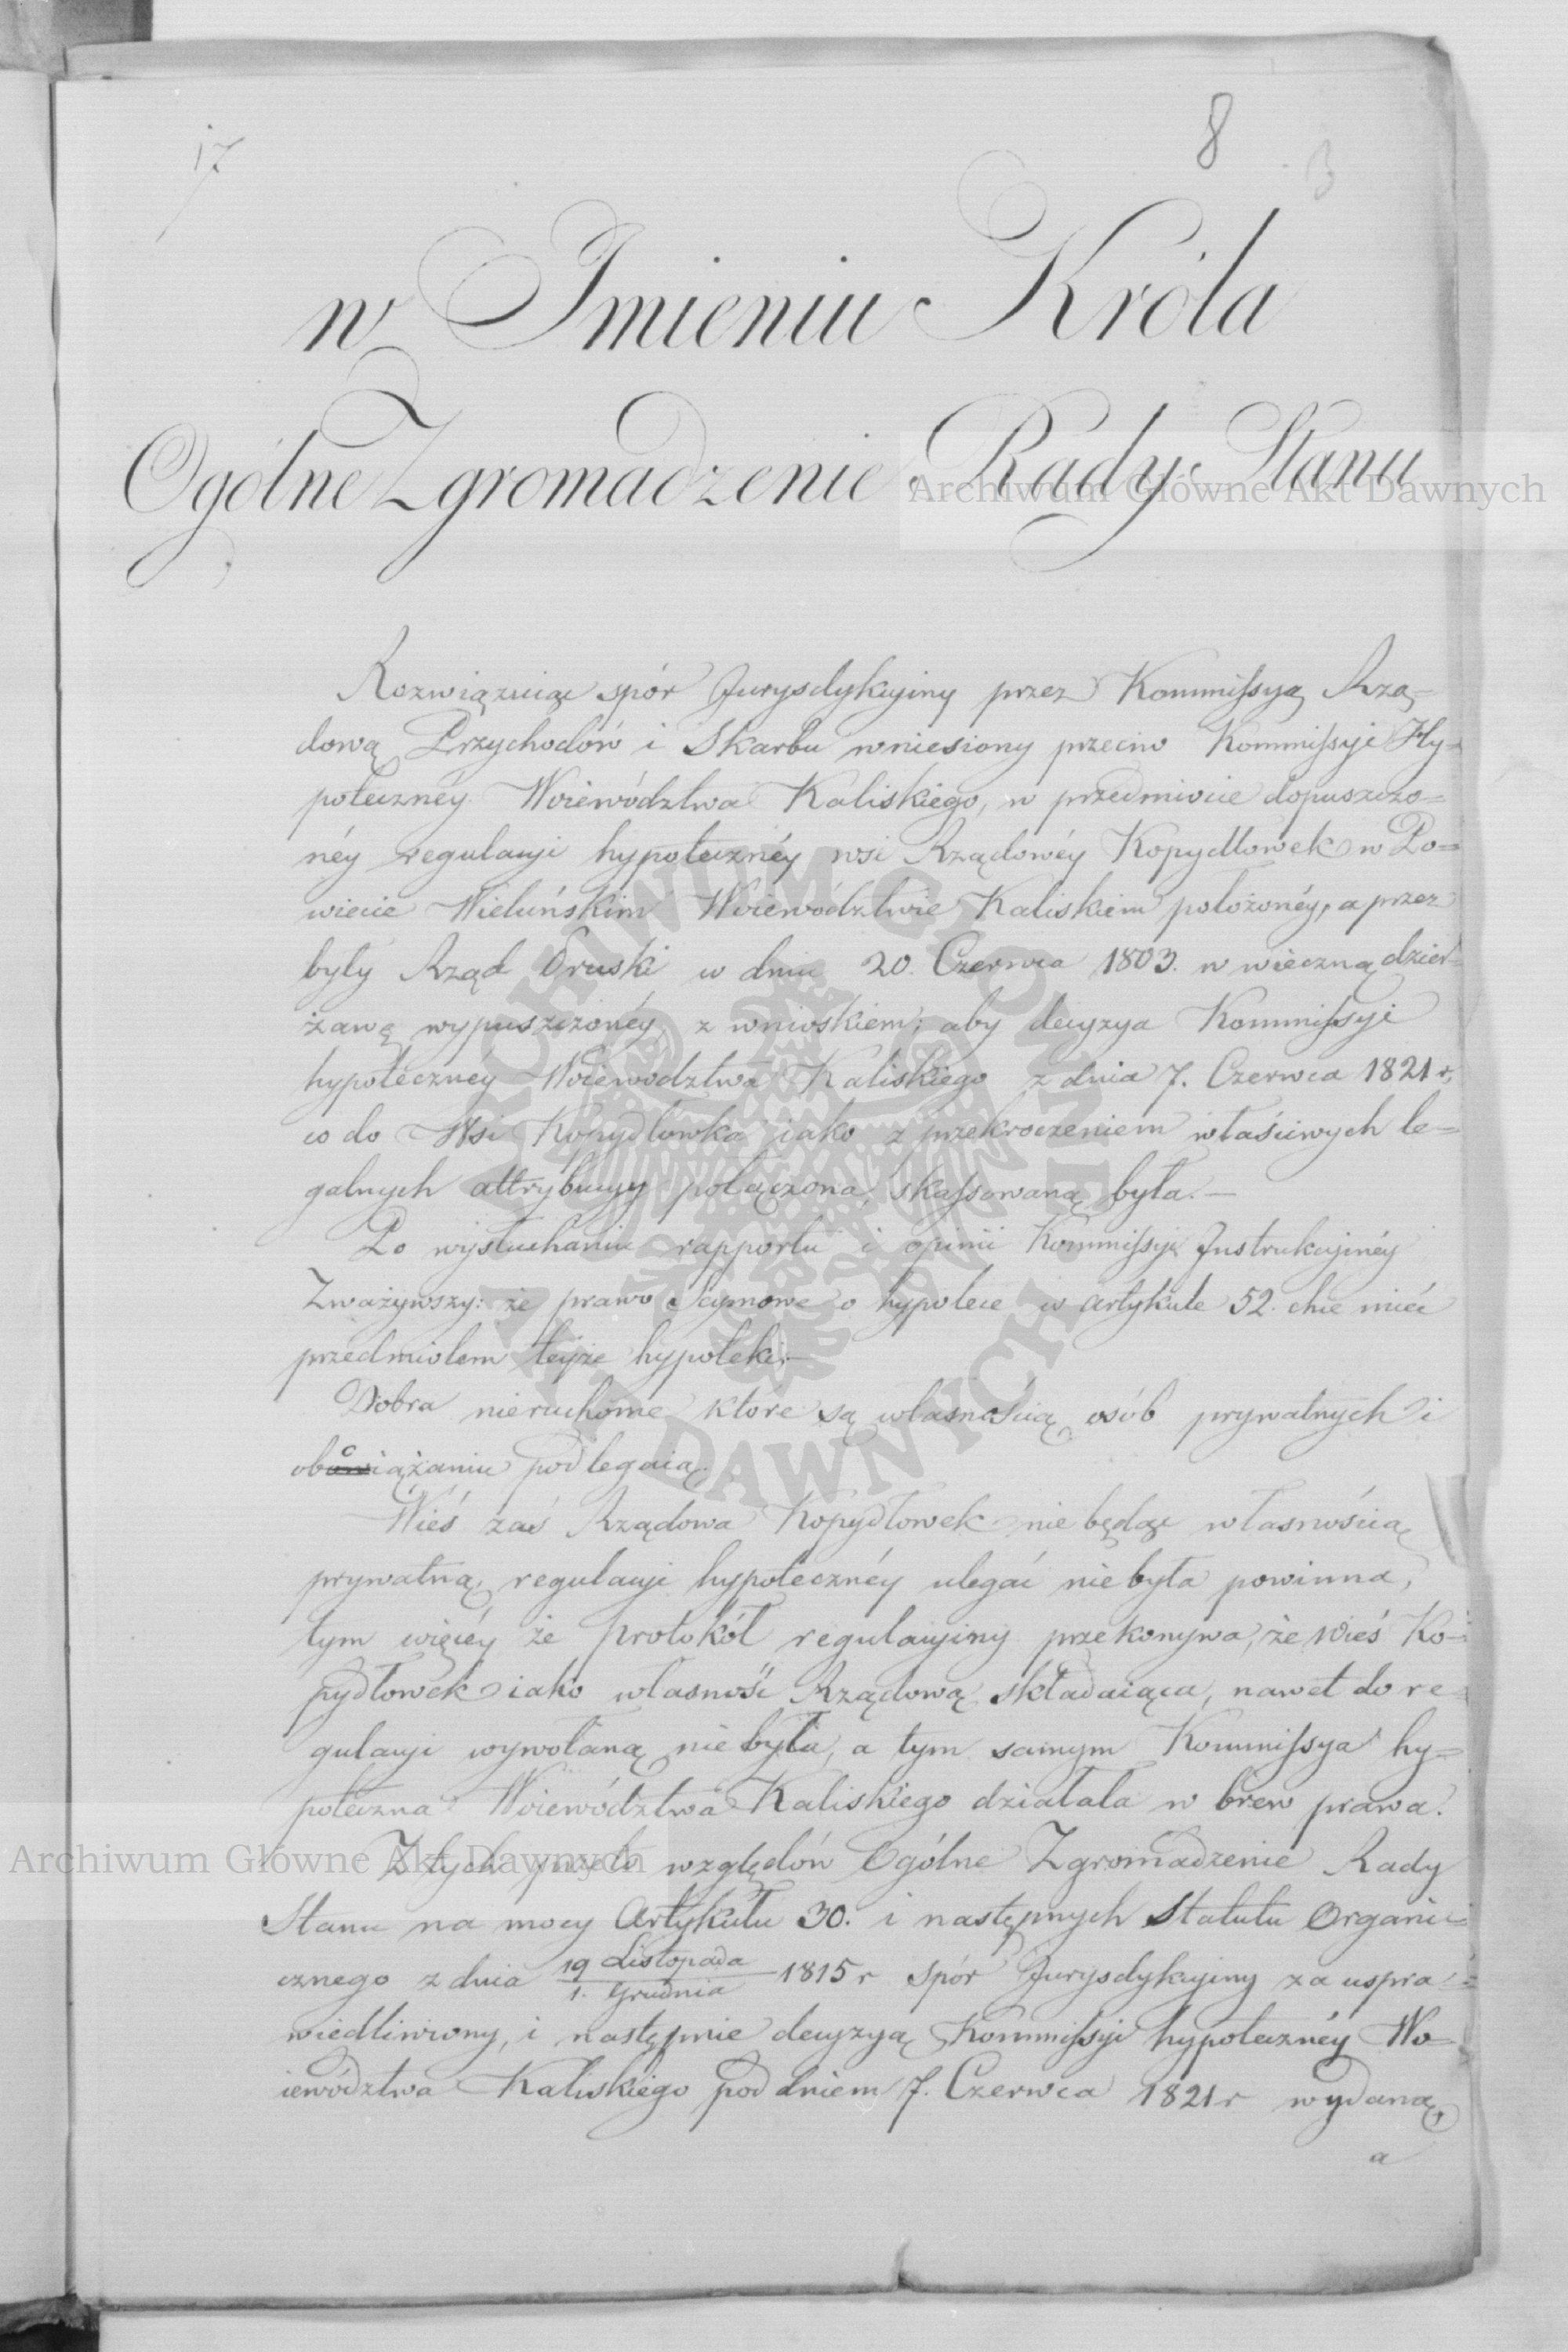 17
8
3
w Imieniu Króla
Ogólne Zgromadzenie Rady Stanu
Rozwiązuiąc spór Jurysdykcyiny przez Kommissyą Rzą=
dową Przychodów i Skarbu wniesiony przeciw Kommissyi Hy=
poteczney Woiewództwa Kaliskiego, w przedmiocie dopuszczo=
néy regulacyi hypotecznéy wsi Rządowéy Kopydłowek w Po=
wiecie Wieluńskim Woiewództwie Kaliskiem położonéy, a przez
były Rząd Pruski w dniu 20. Czerwca 1803. w wieczną dzier=
żawę wypuszczonéy, z wnioskiem; aby decyzya Kommissyi
hypotecznéy Woiewodztwa Kaliskiego z dnia 7. Czerwca 1821 r,
co do Wsi Kopydłowka iako z przekroczeniem właściwych le=
galnych attrybucyy połączona, skassowaną była.—
Po wysłuchaniu rapportu i opinii Kommissyi Instrukcyinéy
Zważywszy: że prawo Seymowe o hypotece w artykule 52. chce mieć
przedmiotem teyże hypoteki,—
Dobra nieruchome które są własnością osób prywatnych i
obciążaniu podlegaią.
Wieś zaś Rządowa Kopydłowek nie będąc własnością
prywatną, regulacyi hypotecznéy ulegać nie była powinna,
tym więcéy że protokół regulacyiny przekonywa, że wieś Ko=
pydłowek iako własność Rządową składaiąca, nawet do re=
gulacyi wywołaną nie była, a tym samym Kommissya hy=
poteczna Woiewództwa Kaliskiego działała w brew prawa.
Z tych przeto względów Ogólne Zgromadzenie Rady
Stanu na mocy Artykułu 30. i następnych Statutu Organi=
cznego z dnia 19 Listopada / 1. Grudnia 1815 r spór Jurysdykcyiny za uspra=
wiedliwiony, i następnie decyzyą Kommissyi hypotecznéy Wo=
iewództwa Kaliskiego pod dniem 7. Czerwca 1821 r wydaną,
a
Archiwum Główne Akt Dawnych
ARCHIWUM GŁÓWNE AKT DAWNYCH
Archiwum Główne Akt Dawnych